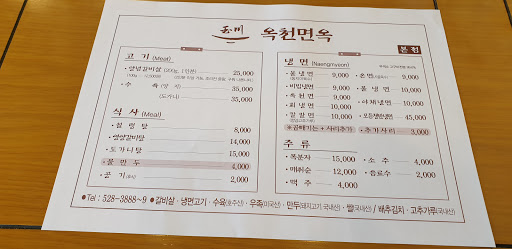 옥천면옥
본점
고 기 (Meat)
• 양념갈비살 (200g, 1인분) 25,000
• 수 육 35,000
(도가니) 35,000
식 사 (Meal)
• 설 렁 탕 8,000
• 왕갈비탕 14,000
• 도가니탕 15,000
• 물 만 두 4,000
• 공 기 2,000
냉 면 (Naengmyeon)
• 물 냉 면 9,000
• 비빔냉면 9,000
• 옥 천 면 9,000
• 회 냉 면 10,000
10,000
• 온 면 9,000
10,000
• 야채냉면 10,000
10,000
• 추가사리 3,000
주 류
• 복분자 15,000
• 매취순 12,000
• 맥 주 4,000
• 소 주 4,000
• 음료수 2,000
● Tel : 528-3888~9 ● 갈비살 · 냉면고기 · 수육(호주산) · 우족(미국산) · 만두(돼지고기 국내산) · 쌀(국내산) / 배추김치 · 고추가루(국내산)